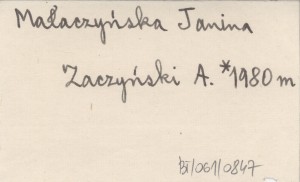 Małaczyńska Janina
Zaczyński A. *1980 m
Bi/061/0847